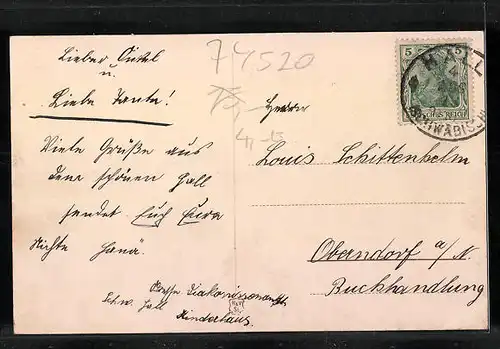 Lieber Onkel
u.
Liebe Tante!
Viele Grüße aus
dem schönen Hall
sendet Euch Eure
Nichte
Diakonissenanst.
Schw. Hall
Kinderhaus.
74520
Herrn
Louis Schittenhelm
Oberndorf a/N.
Buchhandlung
5 5
HALL
SCHWÄBISCH